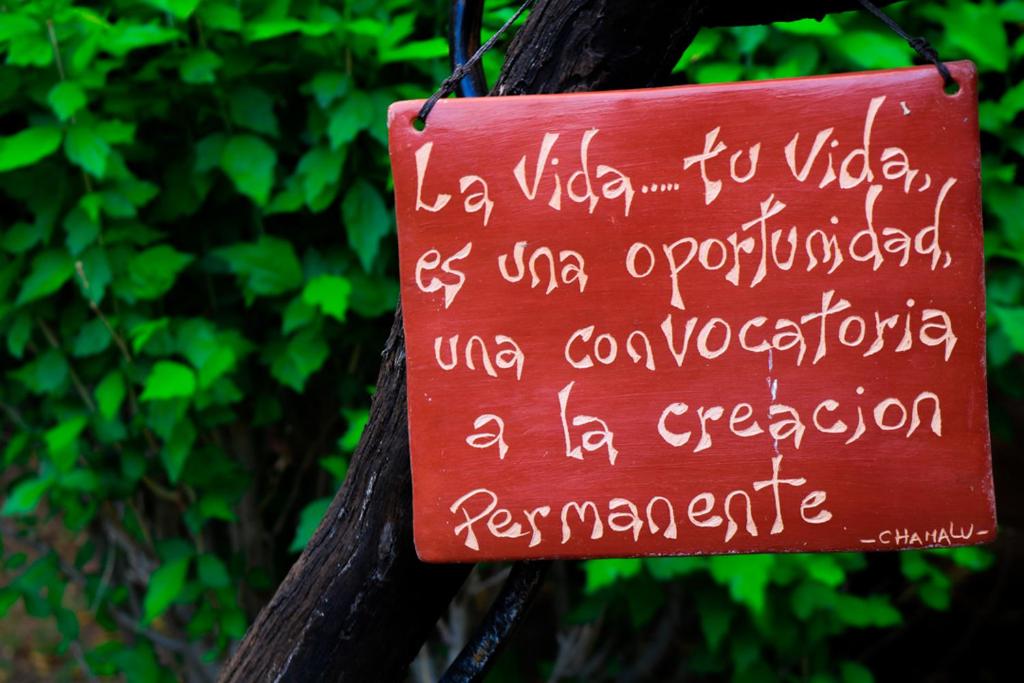 La Vida..... tu Vida,
es una oportunidad,
una convocatoria
a la creacion
Permanente
-CHAMALU-